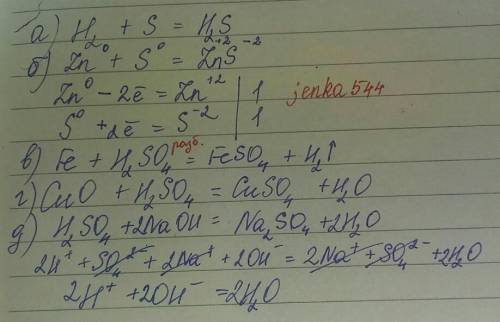 а) H₂ + S = H₂S
б) Zn⁰ + S⁰ = Zn⁺²S⁻²
Zn⁰ - 2ē = Zn⁺² | 1
S⁰ + 2ē = S⁻² | 1
jenka544
в) Fe + H₂SO₄ разб. = FeSO₄ + H₂↑
г) CuO + H₂SO₄ = CuSO₄ + H₂O
д) H₂SO₄ + 2NaOH = Na₂SO₄ + 2H₂O
2H⁺ + SO₄²⁻ + 2Na⁺ + 2OH⁻ = 2Na⁺ + SO₄²⁻ + 2H₂O
2H⁺ + 2OH⁻ = 2H₂O